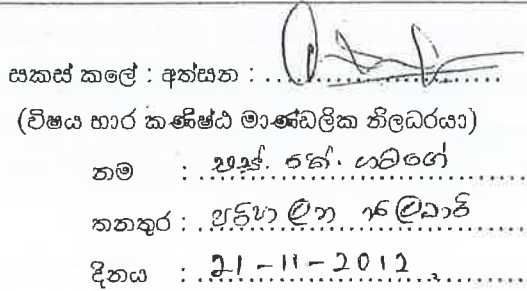 සකස් කලේ : අත්සන :
(විෂය භාර කණිෂ්ඨ මාණ්ඩලික නිලධරයා)
නම : එස්. කේ. ගමගේ
තනතුර : පරිපාලන නිලධාරි
දිනය : 21-11-2012